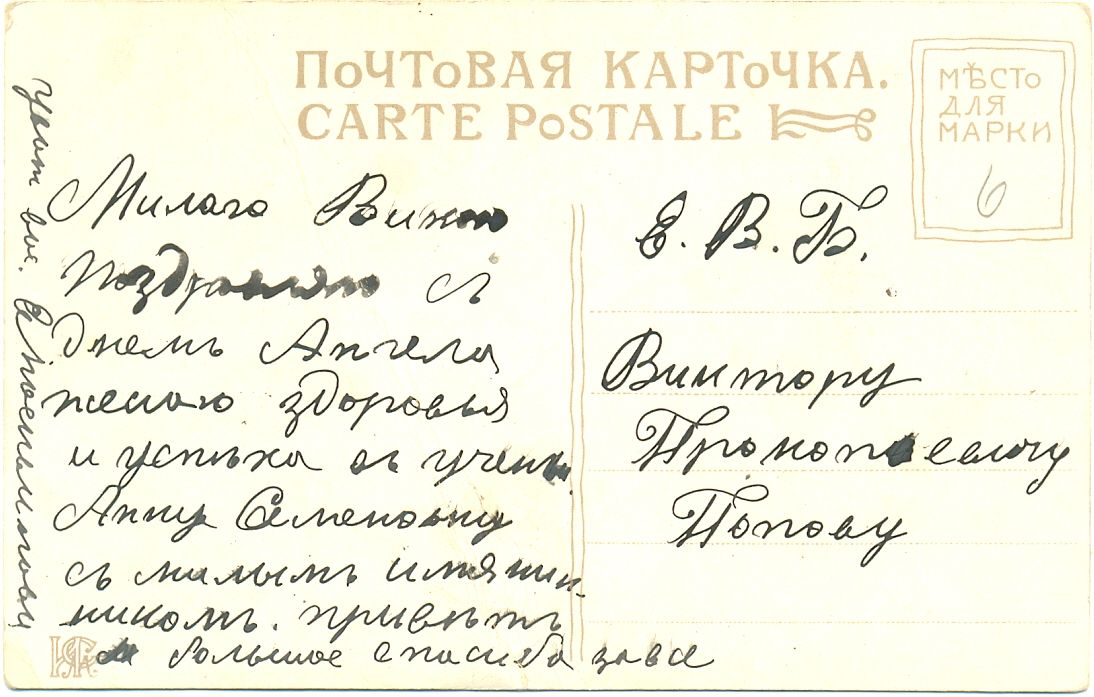 ПОЧТОВАЯ КАРТОЧКА.
CARTE POSTALE
МѢСТО
ДЛЯ
МАРКИ
6
Милаго Витю
Поздравляю съ
Днемъ Ангела
желаю здоровья
и успѣха въ ученьи
Анну Семеновну
съ милымъ имянин-
никомъ. привѣтъ
и большое спасибо за все
Е. В. Б.
Виктору
Прокопьевичу
Попову